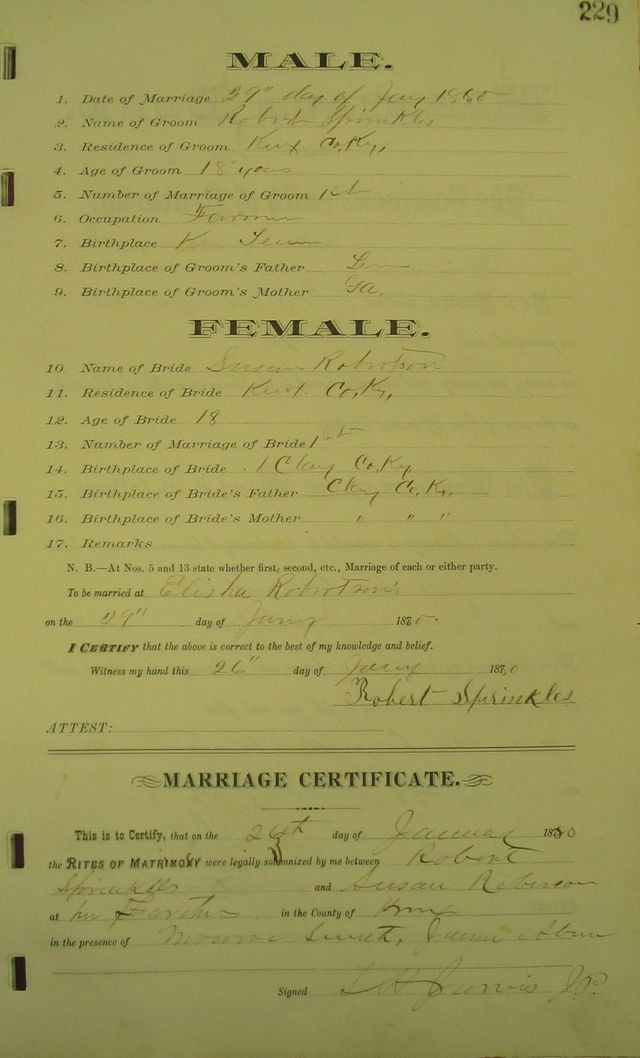 229
MALE.
1. Date of Marriage 29" day of Jany 1880
2. Name of Groom Robert Sprinkles
3. Residence of Groom Knox Co, Ky,
4. Age of Groom 18 years
5. Number of Marriage of Groom 1st
6. Occupation Farmer
7. Birthplace Tenn
8. Birthplace of Groom's Father
9. Birthplace of Groom's Mother Ga.
FEMALE.
10 Name of Bride Susan Robertson
11. Residence of Bride Knox Co, Ky,
12. Age of Bride 18
13. Number of Marriage of Bride 1st
14. Birthplace of Bride Clay Co, Ky
15. Birthplace of Bride's Father Clay Co, Ky,
16. Birthplace of Bride's Mother " " "
17. Remarks
N. B.—At Nos. 5 and 13 state whether first, second, etc., Marriage of each or either party.
To be married at Elisha Robertson's
on the 29" day of Jany 1880.
I CERTIFY that the above is correct to the best of my knowledge and belief.
Witness my hand this 26" day of Jany 1880
Robert Sprinkles
ATTEST:
MARRIAGE CERTIFICATE.
This is to Certify, that on the day of January 1880
the RITES OF MATRIMONY were legally solemnized by me between Robert
Sprinkles and Susan Roberson
at her Farther in the County of Knox
in the presence of Monroe
Signed Jarvis J.P.